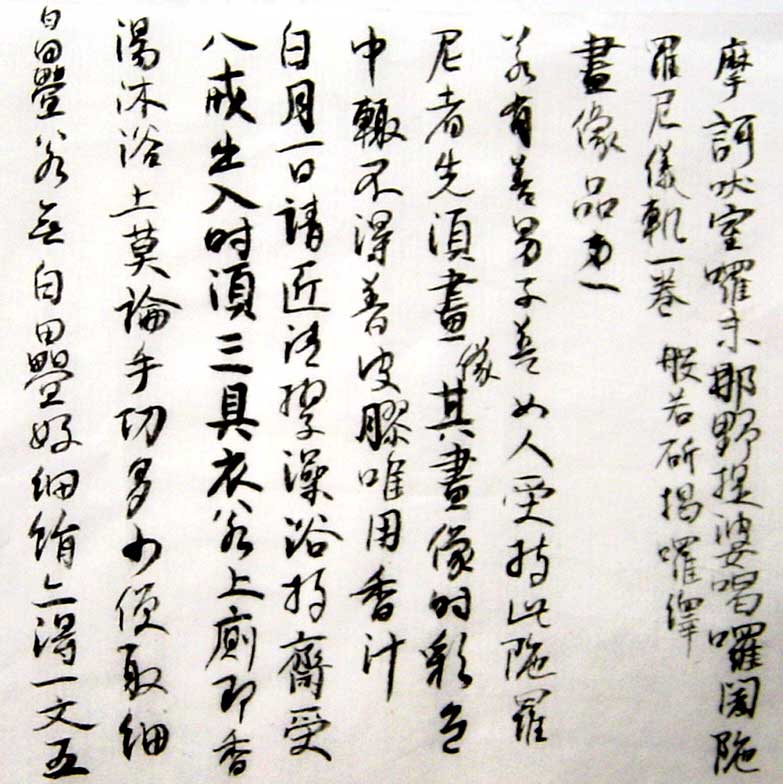 摩訶吠室囉末那野提婆喝囉闍陁
羅尼儀軌一卷 般若斫揭囉譯
畫像品第一
若有善男子善女人受持此陁羅
尼者先須畫像其畫像時彩色
中輙不得著皮膠唯用香汁
白月一日請匠清潔澡浴持齋受
八戒出入時須三具衣若上廁即香
湯沐浴上莫論手功多少便取細
白疊若無白疊好細絹亦得一丈五